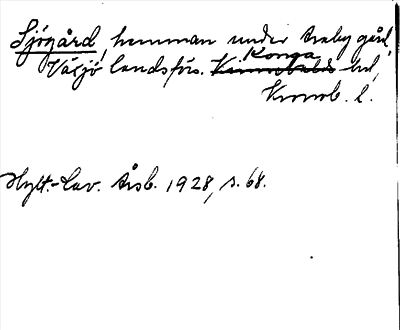 Sjögård, hemman under Araby gård,
Växjö landsförs. Konga hd,
Kronob. l.
Hylt.-Cav. Årsb. 1928, s. 68.